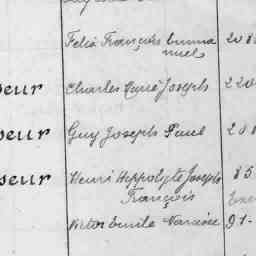 Félix François Emma
nuel
seur Charles René Joseph 220
seur Guy Joseph Paul
seur Henri Hippolyte Joseph 85
François
Victor Emile Narcisse 91-